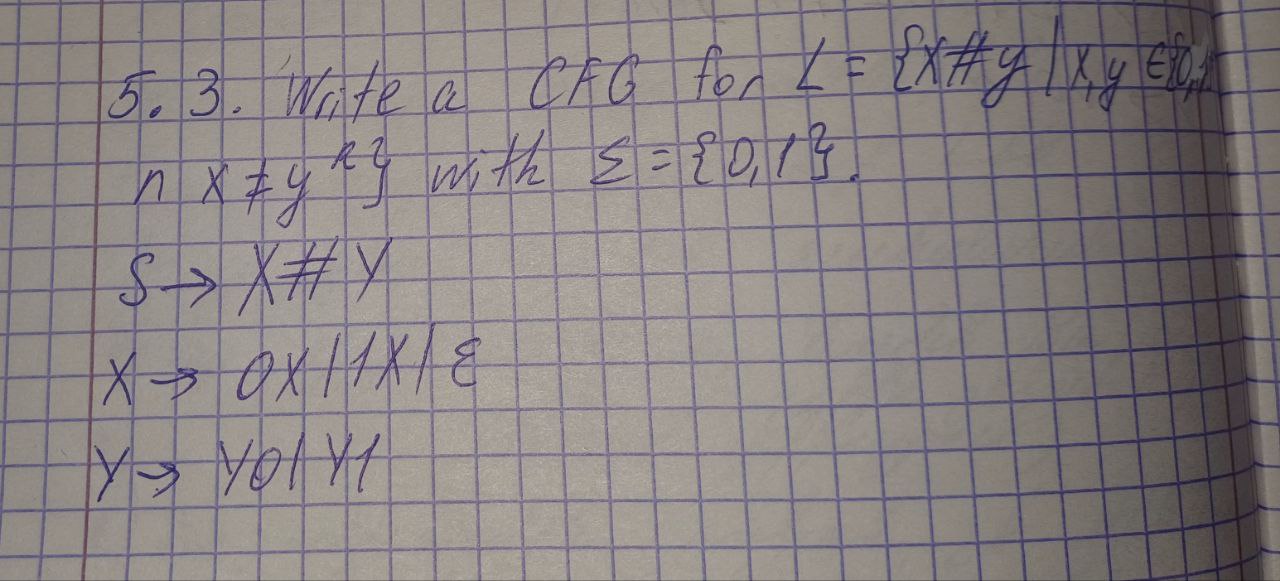 5.3. Write a CFG for L = {x#y | x,y ∈ {0,1
∩ x ≠ y^R} with Σ = {0,1}.
S → X#Y
X → 0X | 1X | ε
Y → Y0 | Y1